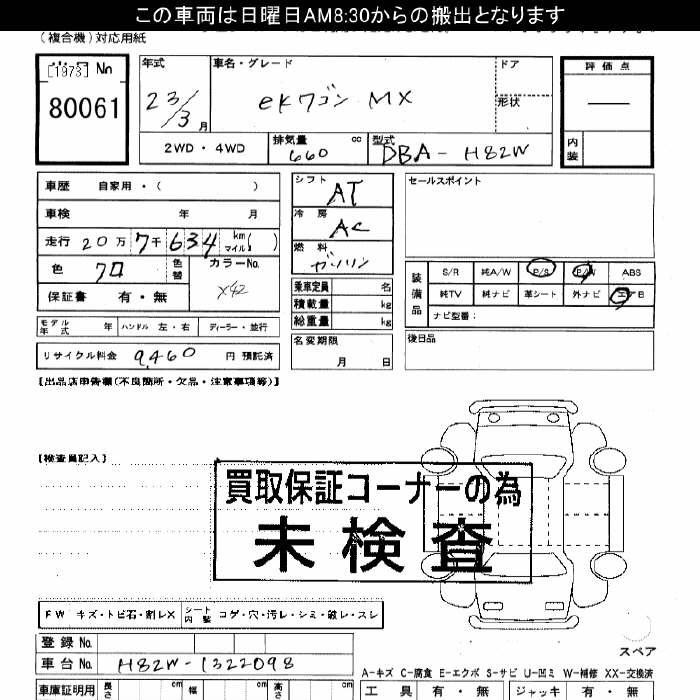 この車両は日曜日AM8:30からの搬出となります
(複合機)対応用紙
[1973] No
80061
年式 23/3月
車名・グレード ekワゴン MX
ドア
形状
2WD・4WD
排気量 660 cc
型式 DBA-H82W
評価点 —
内装
車歴 自家用・( )
車検 年 月
走行 20万7千634 km マイル( )
色 クロ
色替
カラーNo. X42
保証書 有・無
モデル年式 年 ハンドル 左・右 ディーラー・並行
リサイクル料金 9,460 円 預託済
シフト AT
冷房 AC
燃料 ガソリン
乗車定員 名
積載量 kg
総重量 kg
名変期限 月 日
セールスポイント
装備品
S/R 純A/W P/S P/W ABS
純TV 純ナビ 革シート 外ナビ エアB
ナビ型番:
後日品
【出品店申告欄(不良箇所・欠品・注意事項等)】
【検査員記入】
買取保証コーナーの為
未検査
FW キズ・トビ石・割レX シート内装 コゲ・穴・汚レ・シミ・破レ・スレ
登録No.
車台No. H82W-1322098
車庫証明用 長さ cm 幅 cm 高さ cm
スペア
A-キズ C-腐食 E-エクボ S-サビ U-凹ミ W-補修 XX-交換済
工具 有・無 ジャッキ 有・無